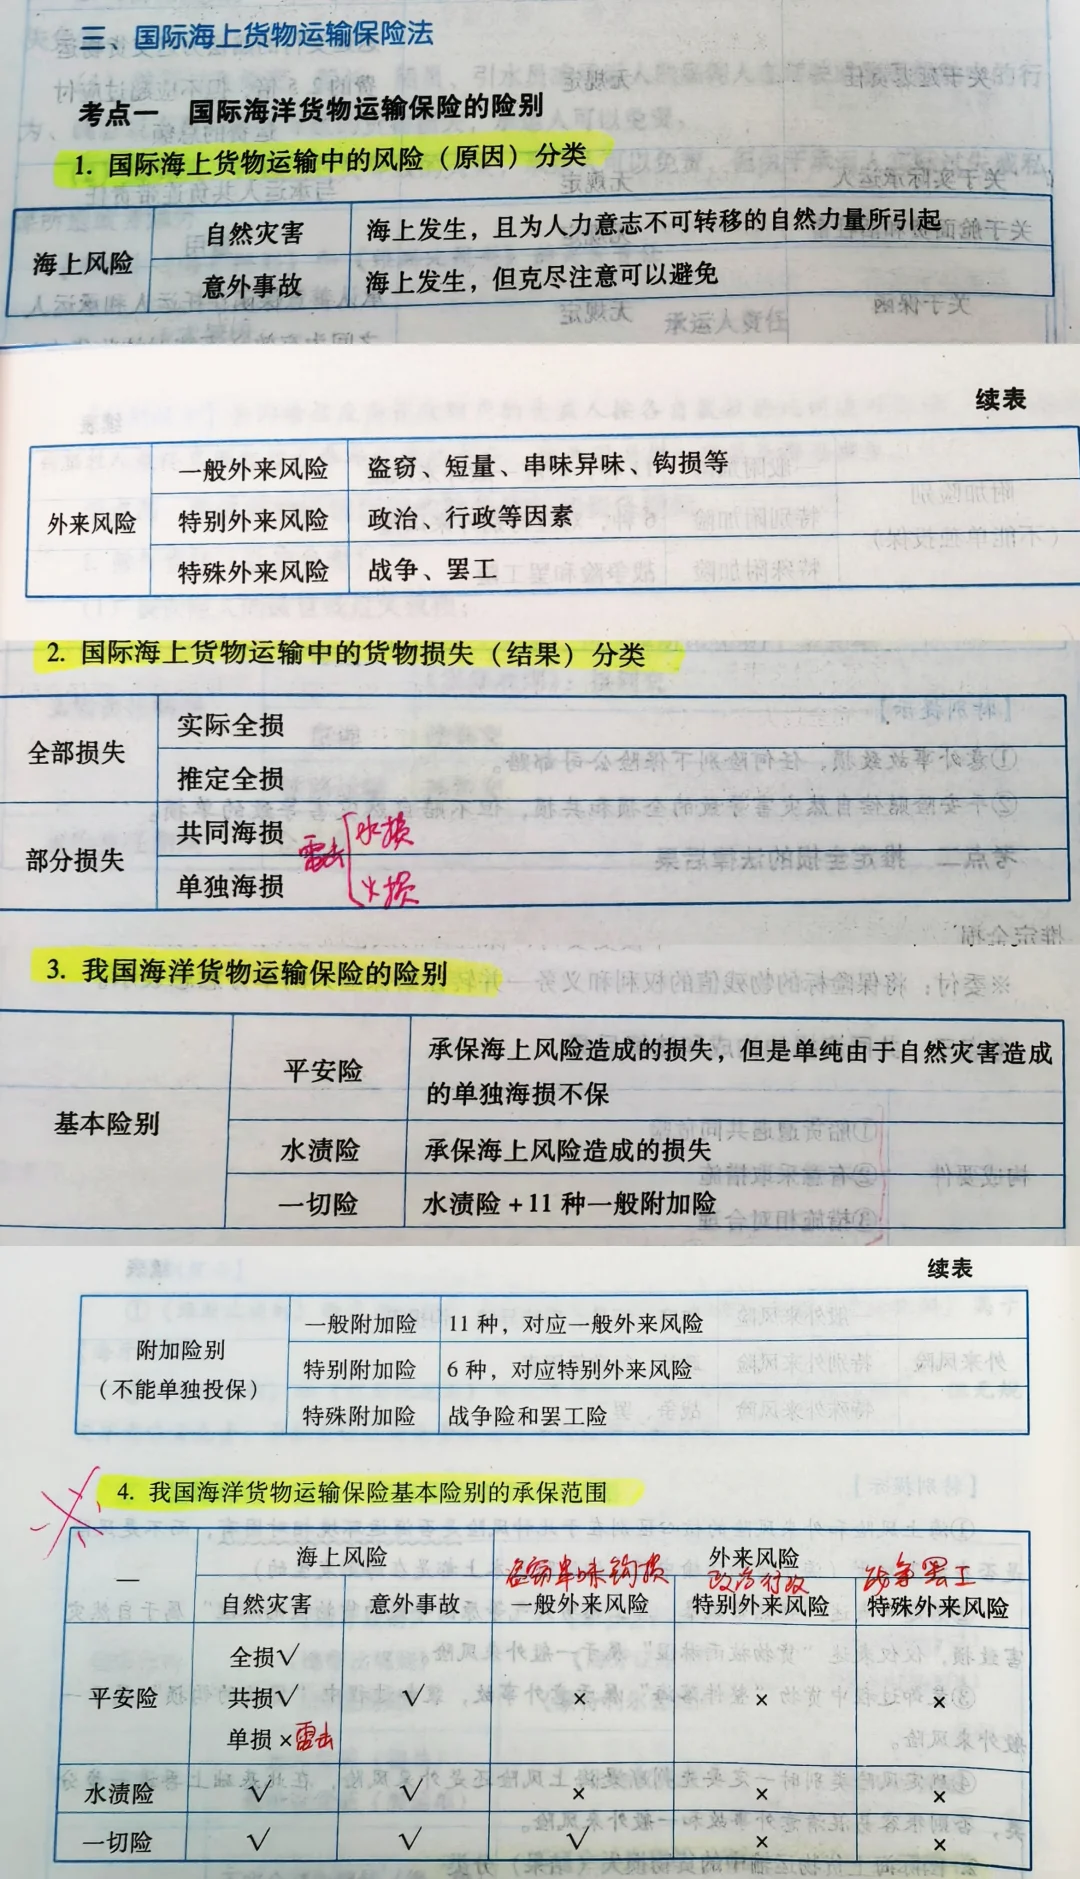 三、国际海上货物运输保险法
考点一 国际海洋货物运输保险的险别
1. 国际海上货物运输中的风险（原因）分类
海上风险 自然灾害 海上发生，且为人力意志不可转移的自然力量所引起
意外事故 海上发生，但克尽注意可以避免
续表
外来风险 一般外来风险 盗窃、短量、串味异味、钩损等
特别外来风险 政治、行政等因素
特殊外来风险 战争、罢工
2. 国际海上货物运输中的货物损失（结果）分类
全部损失 实际全损
推定全损
部分损失 共同海损 雷击 水损
单独海损 火损
3. 我国海洋货物运输保险的险别
基本险别 平安险 承保海上风险造成的损失，但是单纯由于自然灾害造成
的单独海损不保
水渍险 承保海上风险造成的损失
一切险 水渍险+11种一般附加险
续表
附加险别
（不能单独投保）
一般附加险 11种，对应一般外来风险
特别附加险 6种，对应特别外来风险
特殊附加险 战争险和罢工险
4. 我国海洋货物运输保险基本险别的承保范围
— 海上风险 外来风险
盗窃串味钩损 政治行政 战争罢工
自然灾害 意外事故 一般外来风险 特别外来风险 特殊外来风险
平安险 全损√
共损√ √ × × ×
单损× 雷击
水渍险 √ √ × × ×
一切险 √ √ √ × ×